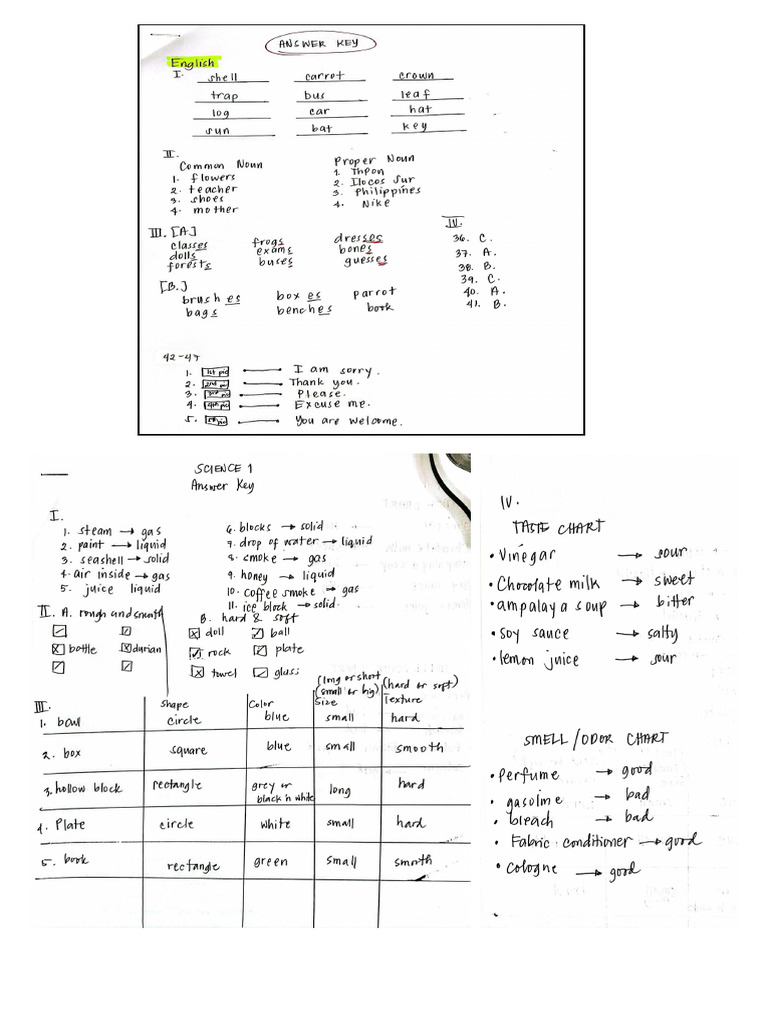 ANSWER KEY
English
I. shell carrot crown
trap bus leaf
log car hat
sun bat key
II.
Common Noun Proper Noun
1. flowers 1. Thpon
2. teacher 2. Ilocos Sur
3. shoes 3. Philippines
4. mother 4. Nike
III. [A.] IV.
classes frogs dresses 36. C.
dolls exams bones 37. A.
forests buses guesses 38. B.
39. C.
[B.] 40. A.
brushes boxes parrot 41. B.
bags benches book
42-47
1. 1st pic I am sorry.
2. 2nd pic Thank you.
3. 3rd pic Please.
4. 4th pic Excuse me.
5. 5th pic You are welcome.
SCIENCE 1
Answer Key
I.
1. steam → gas
2. paint → liquid
3. seashell → solid
4. air inside → gas
5. juice liquid
6. blocks → solid
7. drop of water → liquid
8. smoke → gas
9. honey → liquid
10. coffee smoke → gas
11. ice block → solid.
II. A. rough and smooth
bottle durian
B. hard & soft
doll ball
rock plate
towel glass
III. Shape Color (long or short) (small or big) Size (hard or soft) Texture
1. bowl circle blue small hard
2. box square blue small smooth
3. hollow block rectangle grey or black n white long hard
4. Plate circle white small hard
5. book rectangle green small smooth
IV.
TASTE CHART
• Vinegar → sour
• Chocolate milk → sweet
• ampalaya soup → bitter
• soy sauce → salty
• lemon juice → sour
SMELL/ODOR CHART
• Perfume → good
• gasoline → bad
• bleach → bad
• Fabric conditioner → good
• Cologne → good